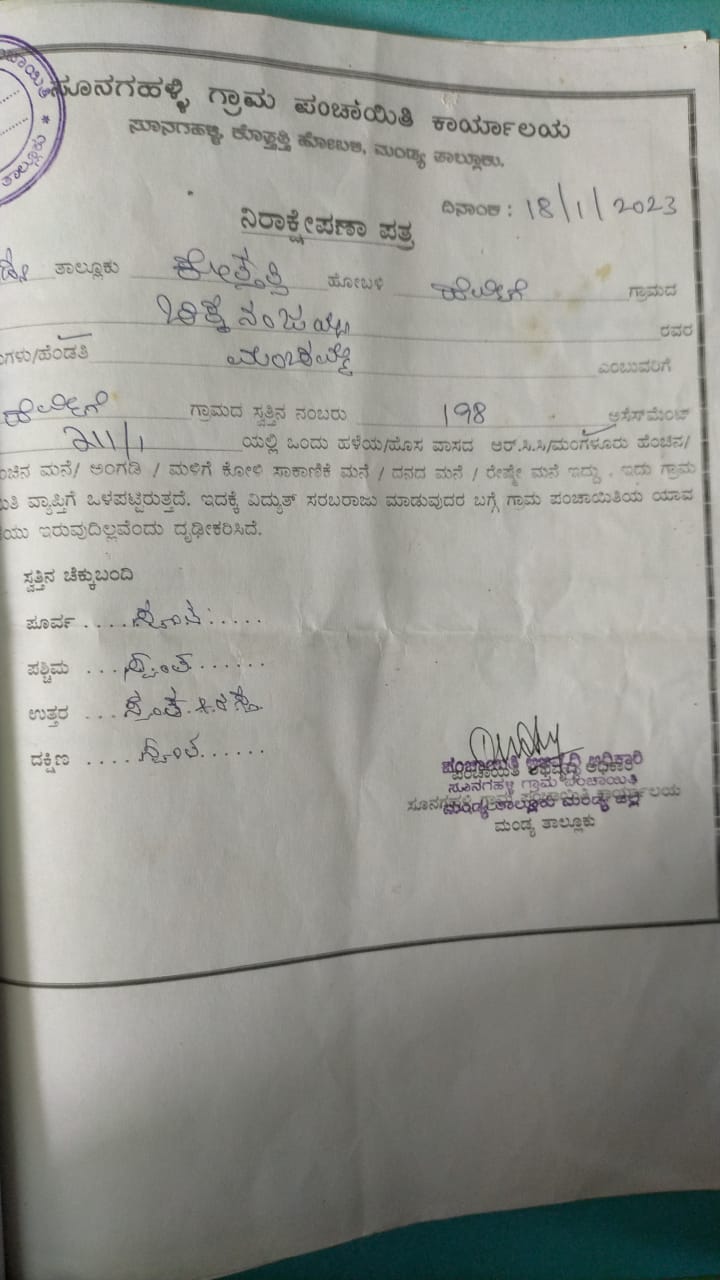 ಸೂನಗಹಳ್ಳಿ ಗ್ರಾಮ ಪಂಚಾಯಿತಿ ಕಾರ್ಯಾಲಯ
ಸೂನಗಹಳ್ಳಿ, ಕೊತ್ತತ್ತಿ ಹೋಬಳಿ, ಮಂಡ್ಯ ತಾಲ್ಲೂಕು.
ತಾಲ್ಲೂಕು *
ದಿನಾಂಕ : 18/1/2023
ನಿರಾಕ್ಷೇಪಣಾ ಪತ್ರ
ತಾಲ್ಲೂಕು ಕೊತ್ತತ್ತಿ ಹೋಬಳಿ ಗ್ರಾಮದ
ರವರ
ಗಳು/ಹೆಂಡತಿ ಎಂಬುವರಿಗೆ
ಗ್ರಾಮದ ಸ್ವತ್ತಿನ ನಂಬರು 198 ಅಸೆಸ್‌ಮೆಂಟ್
211/1 ಯಲ್ಲಿ ಒಂದು ಹಳೆಯ/ಹೊಸ ವಾಸದ ಆರ್.ಸಿ.ಸಿ/ಮಂಗಳೂರು ಹೆಂಚಿನ/
ಂಚಿನ ಮನೆ/ ಅಂಗಡಿ / ಮಳಿಗೆ ಕೋಳಿ ಸಾಕಾಣಿಕೆ ಮನೆ / ದನದ ಮನೆ / ರೇಷ್ಮೇ ಮನೆ ಇದ್ದು , ಇದು ಗ್ರಾಮ
ತಿ ವ್ಯಾಪ್ತಿಗೆ ಒಳಪಟ್ಟಿರುತ್ತದೆ. ಇದಕ್ಕೆ ವಿದ್ಯುತ್ ಸರಬರಾಜು ಮಾಡುವುದರ ಬಗ್ಗೆ ಗ್ರಾಮ ಪಂಚಾಯಿತಿಯ ಯಾವ
ಯು ಇರುವುದಿಲ್ಲವೆಂದು ದೃಢೀಕರಿಸಿದೆ.
ಸ್ವತ್ತಿನ ಚೆಕ್ಕುಬಂದಿ
ಪೂರ್ವ .... ಸ್ವಂತ .....
ಪಶ್ಚಿಮ ... ಸ್ವಂತ ......
ಉತ್ತರ ... ಸ್ವಂತ
ದಕ್ಷಿಣ .... ಸ್ವಂತ ......
ಪಂಚಾಯಿತಿ ಅಭಿವೃದ್ಧಿ ಅಧಿಕಾರಿ
ಸೂನಗಹಳ್ಳಿ ಗ್ರಾಮ ಪಂಚಾಯಿತಿ
ಸೂನಗಹಳ್ಳಿ ಗ್ರಾಮ ಪಂಚಾಯಿತಿ ಕಾರ್ಯಾಲಯ
ಮಂಡ್ಯ ತಾಲ್ಲೂಕು